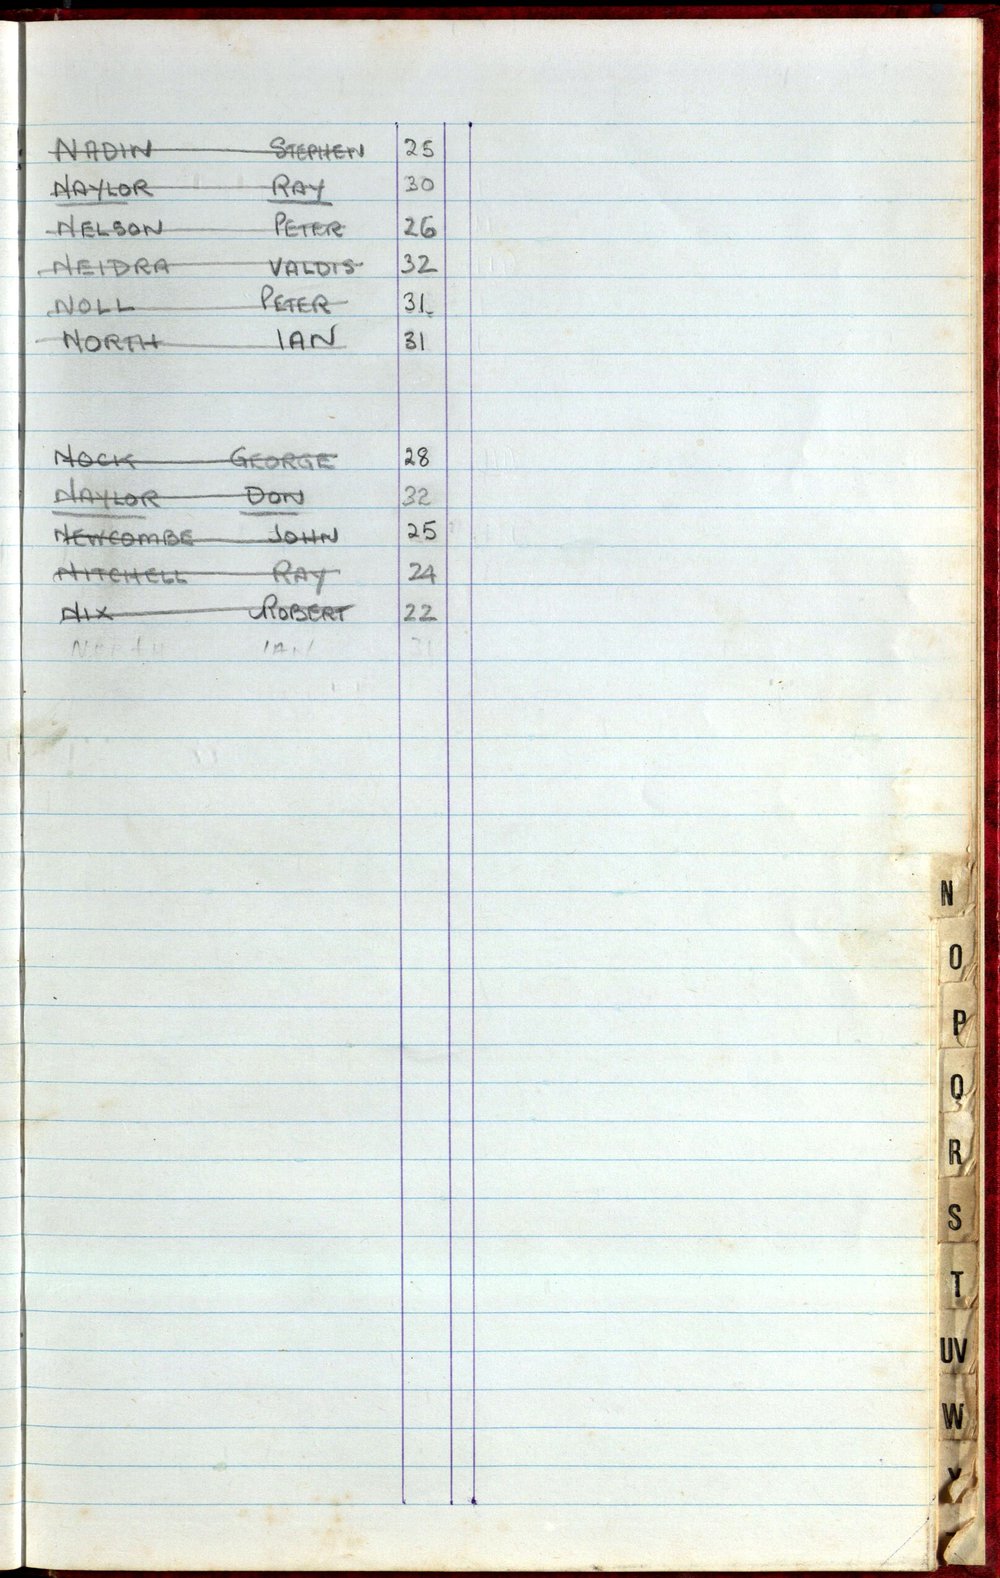 NADIN STEPHEN 25
NAYLOR RAY 30
NELSON PETER 26
NEIDRA VALDIS 32
NOLL PETER 31
NORTH IAN 31
NOCK GEORGE 28
NAYLOR DON 32
NEWCOMBE JOHN 25
NITCHELL RAY 24
NIX ROBERT 22
NORTH IAN 31
N
O
P
Q
R
S
T
UV
W